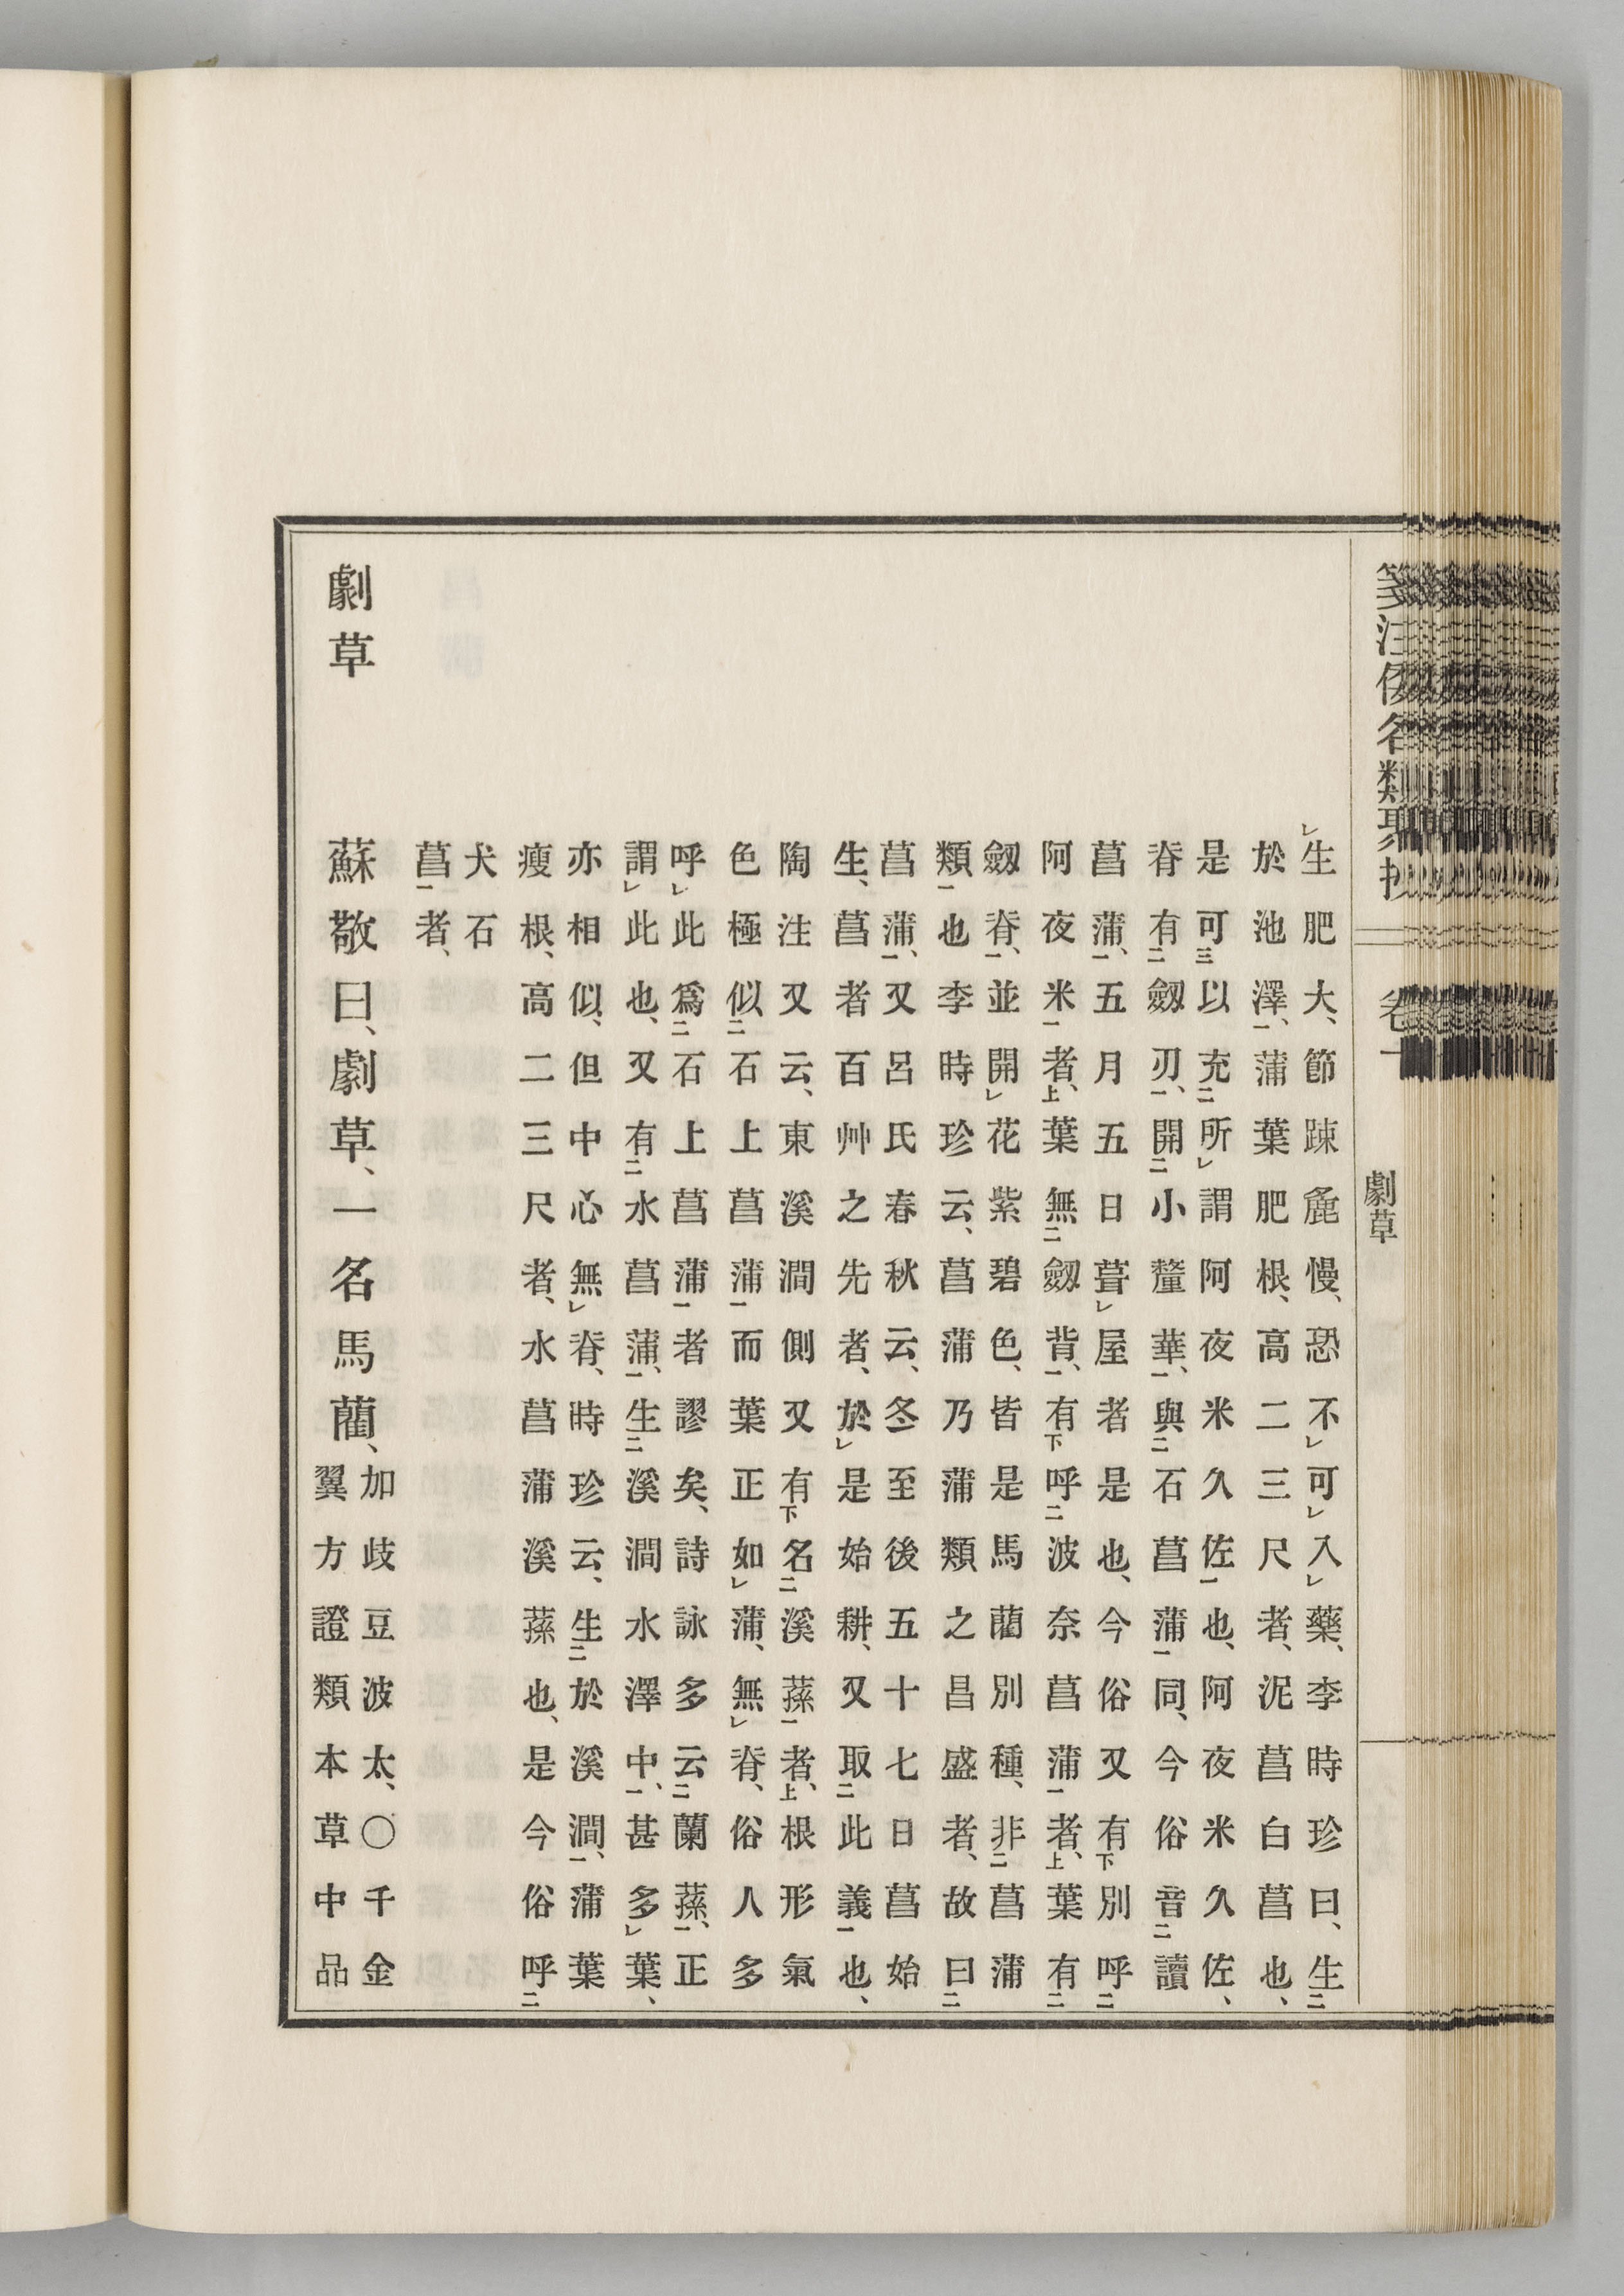 箋注倭名類聚抄 卷十 劇草
生肥大、節踈麁慢、恐不可入藥、李時珍曰、生
於池澤、蒲葉肥根、高二三尺者、泥菖白菖也、
是可以充所謂阿夜米久佐也、阿夜米久佐、
脊有劒刃、開小釐華、與石菖蒲同、今俗音讀
菖蒲、五月五日葺屋者是也、今俗又有別呼
阿夜米者、葉無劒背、有呼波奈菖蒲者、葉有
劒脊、並開花紫碧色、皆是馬藺別種、非菖蒲
類也李時珍云、菖蒲乃蒲類之昌盛者、故曰
菖蒲、又呂氏春秋云、冬至後五十七日菖始
生、菖者百艸之先者、於是始耕、又取此義也、
陶注又云、東溪澗側又有名溪蓀者、根形氣
色極似石上菖蒲而葉正如蒲、無脊、俗人多
呼此爲石上菖蒲者謬矣、詩詠多云蘭蓀、正
謂此也、又有水菖蒲、生溪澗水澤中、甚多葉、
亦相似、但中心無脊、時珍云、生於溪澗、蒲葉
瘦根、高二三尺者、水菖蒲溪蓀也、是今俗呼
犬石
菖者、
劇草 蘇敬曰、劇草、一名馬藺、
加歧豆波太、〇千金
翼方證類本草中品